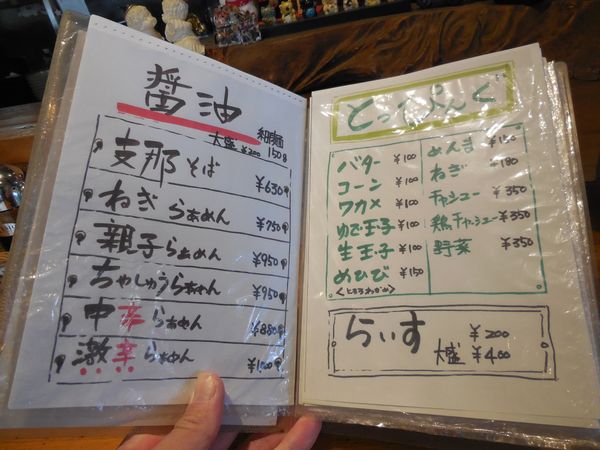 醤油
細麺
大盛 ¥200 150g
支那そば ¥630
ねぎらぁめん ¥750
親子らぁめん ¥950
ちゃしゅうらぁめん ¥950
中辛らぁめん ¥880
激辛らぁめん
とっぴんぐ
バター ¥100
コーン ¥100
ワカメ ¥100
ゆで玉子 ¥100
生玉子 ¥100
めひび ¥150
<とろろわかめ>
めんま ¥150
ねぎ ¥180
チャシュー ¥350
鶏チャーシュー ¥350
野菜 ¥350
らいす ¥200
大盛 ¥400